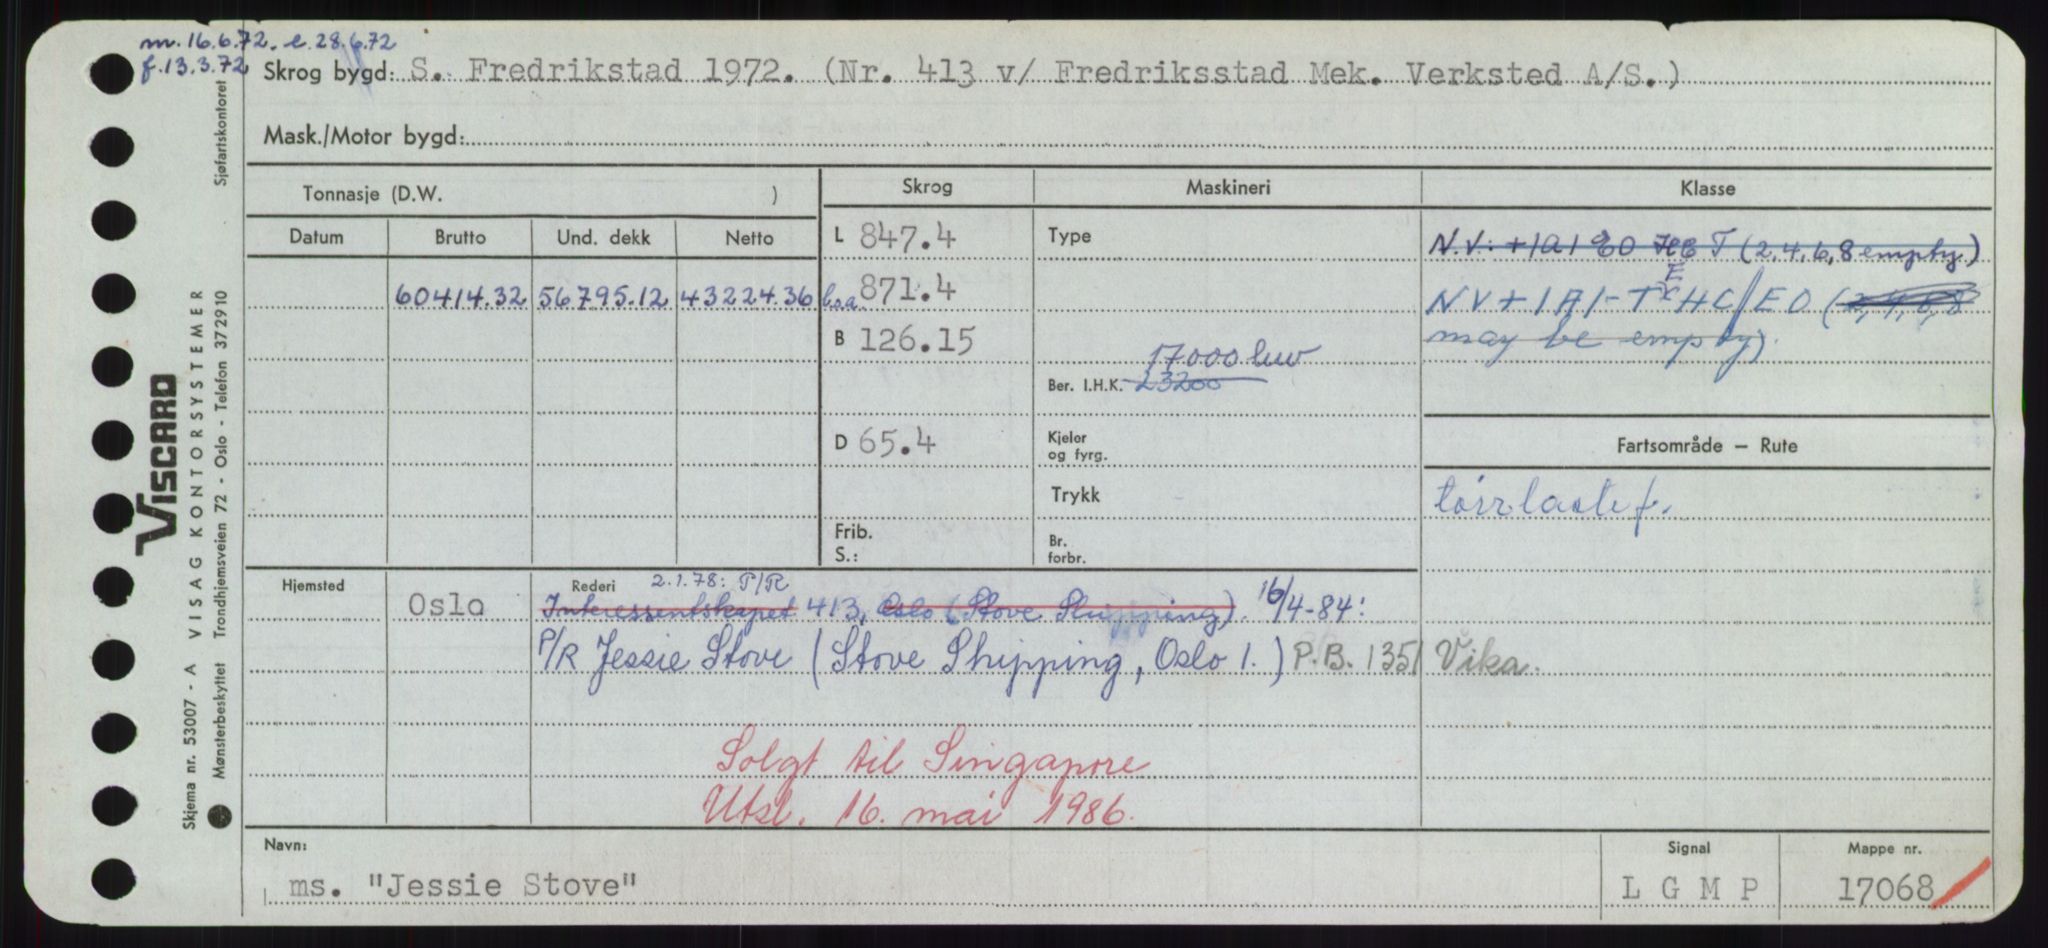 m. 16.6.72. e. 28.6.72
f. 13.3.72
Skrog bygd: S. Fredrikstad 1972. (Nr. 413 v/ Fredriksstad Mek. Verksted A/S.)
Mask./Motor bygd:
Tonnasje (D.W. )
Skrog Maskineri Klasse
Datum Brutto Und. dekk Netto
L 847.4 Type N.V. +1A1 EO HC T (2,4,6,8 empty)
60414.32 56795.12 43224.36 l.o.a. 871.4
NV+1A1-T HC/EO (2,4,6,8
E
B 126.15 may be empty).
17000 
Ber. I.H.K. 23200
D 65.4 Kjeler og fyrg.
Fartsområde — Rute
Trykk tørrlastef.
Frib. S.: Br. forbr.
Hjemsted Rederi 2.1.78: P/R
Oslo Interessentskapet 413, Oslo (Stove Shipping). 16/4-84:
P/R Jessie Stove (Stove Shipping, Oslo 1.) P.B. 1351 Vika.
Solgt til Singapore
Utsl. 16. mai 1986.
Navn: Signal Mappe nr.
ms. "Jessie Stove" L G M P 17068
VISCARD
Skjema nr. 53007 - A VISAG KONTORSYSTEMER
Mønsterbeskyttet Trondhjemsveien 72 - Oslo - Telefon 372910 Sjøfartskontoret